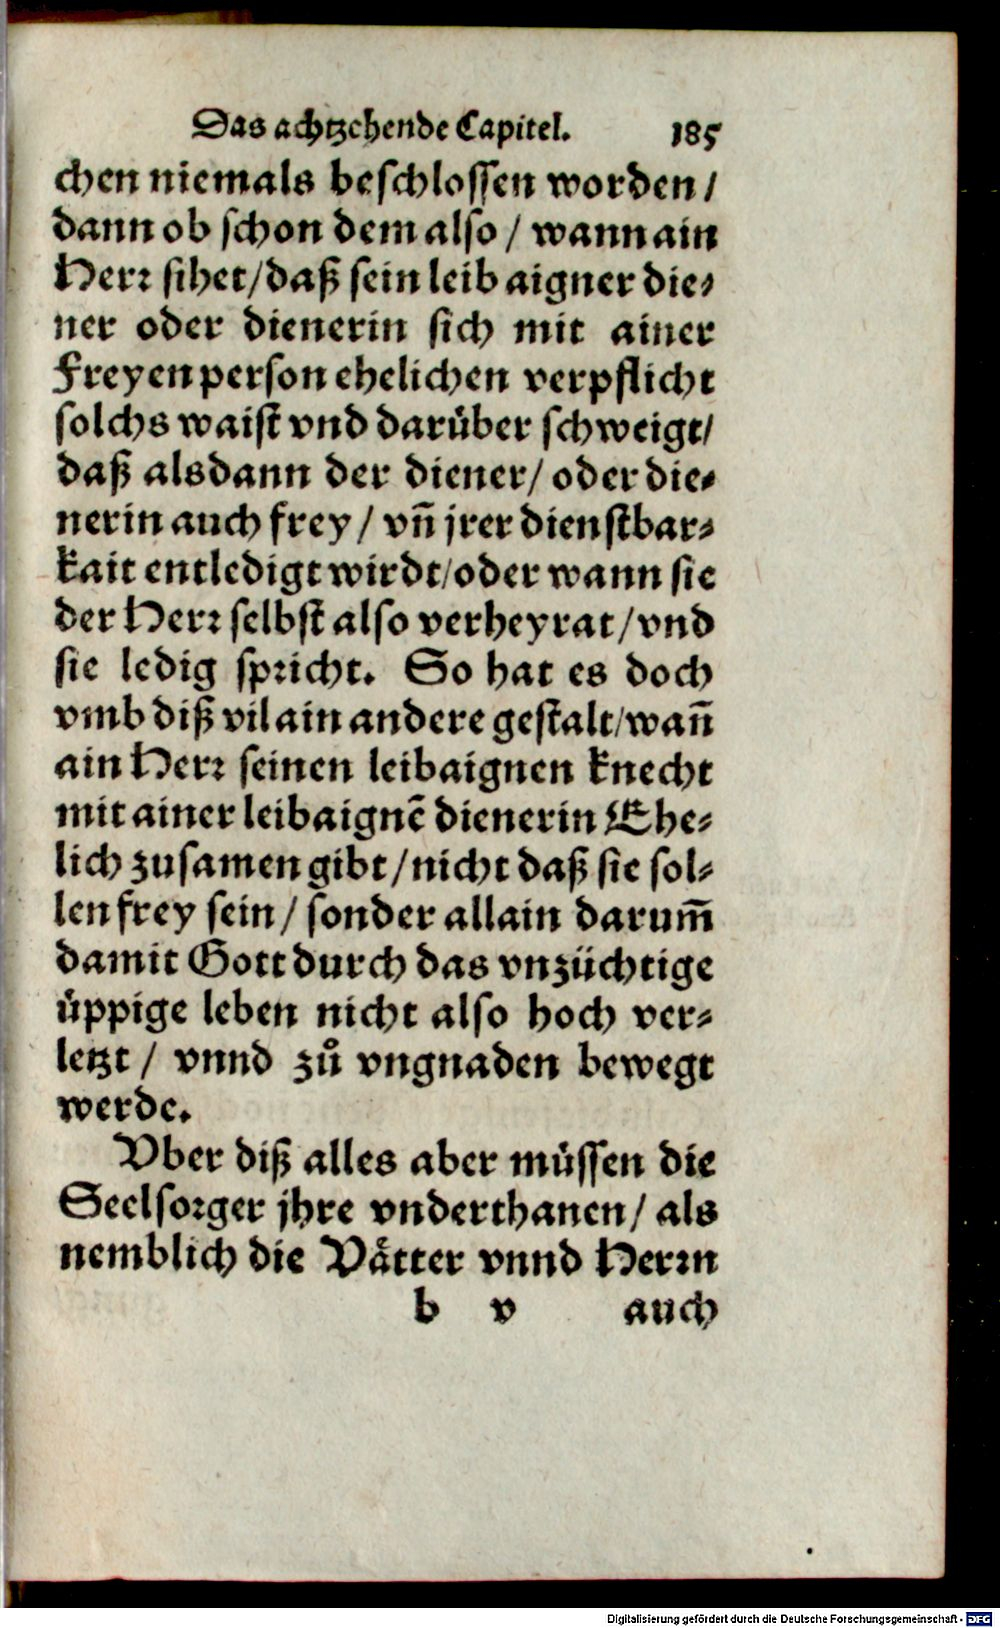 Das achtzehende Capitel. 185
chen niemals beschlossen worden /
dann ob schon dem also / wann ain
Herr sihet / daß sein leib aigner die⸗
ner oder dienerin sich mit ainer
Freyen person ehelichen verpflicht
solchs waist vnd darüber schweigt /
daß alsdann der diener / oder die⸗
nerin auch frey / vñ jrer dienstbar⸗
kait entledigt wirdt / oder wann sie
der Herr selbst also verheyrat / vnd
sie ledig spricht. So hat es doch
vmb diß vil ain andere gestalt / wañ
ain Herr seinen leibaignen knecht
mit ainer leibaignē dienerin Ehe⸗
lich zusamen gibt / nicht daß sie sol⸗
len frey sein / sonder allain darum̃
damit Gott durch das vnzüchtige
üppige leben nicht also hoch ver⸗
letzt / vnnd zů vngnaden bewegt
werde.
Vber diß alles aber müssen die
Seelsorger jhre vnderthanen / als
nemblich die Vätter vnnd Herrn
b v auch
Digitalisierung gefördert durch die Deutsche Forschungsgemeinschaft - DFG